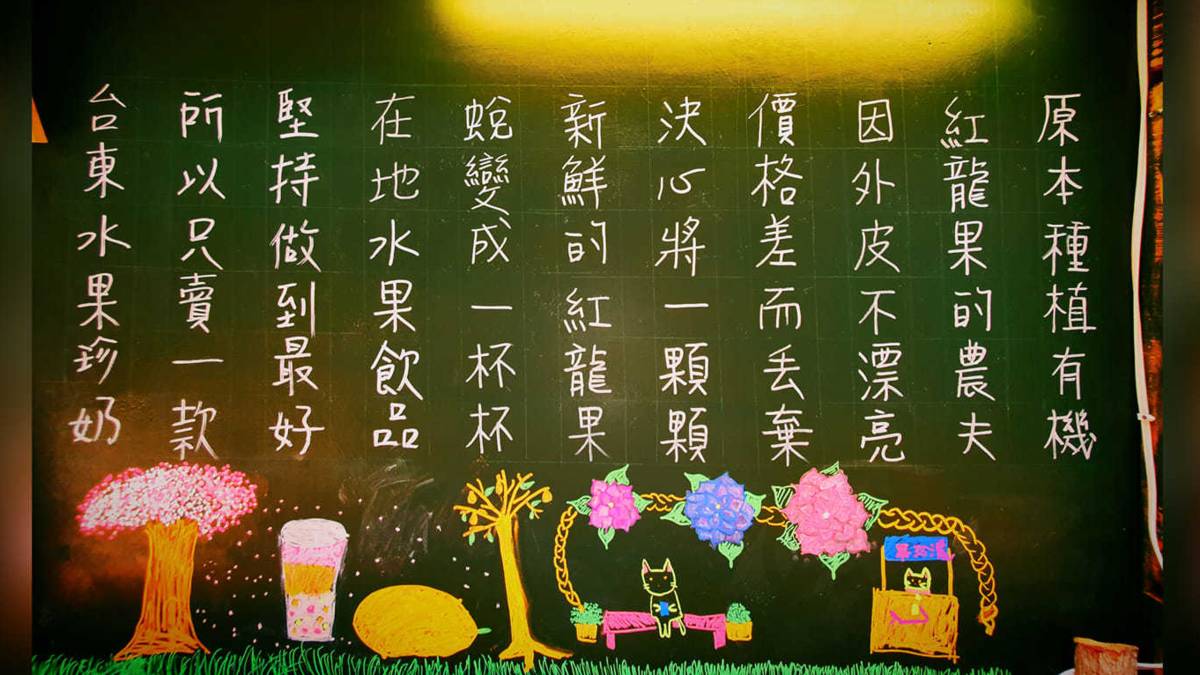 原本種植有機
紅龍果的農夫
因外皮不漂亮
價格差而丟棄
決心將一顆顆
新鮮的紅龍果
蛻變成一杯杯
在地水果飲品
堅持做到最好
所以只賣一款
台東水果珍奶